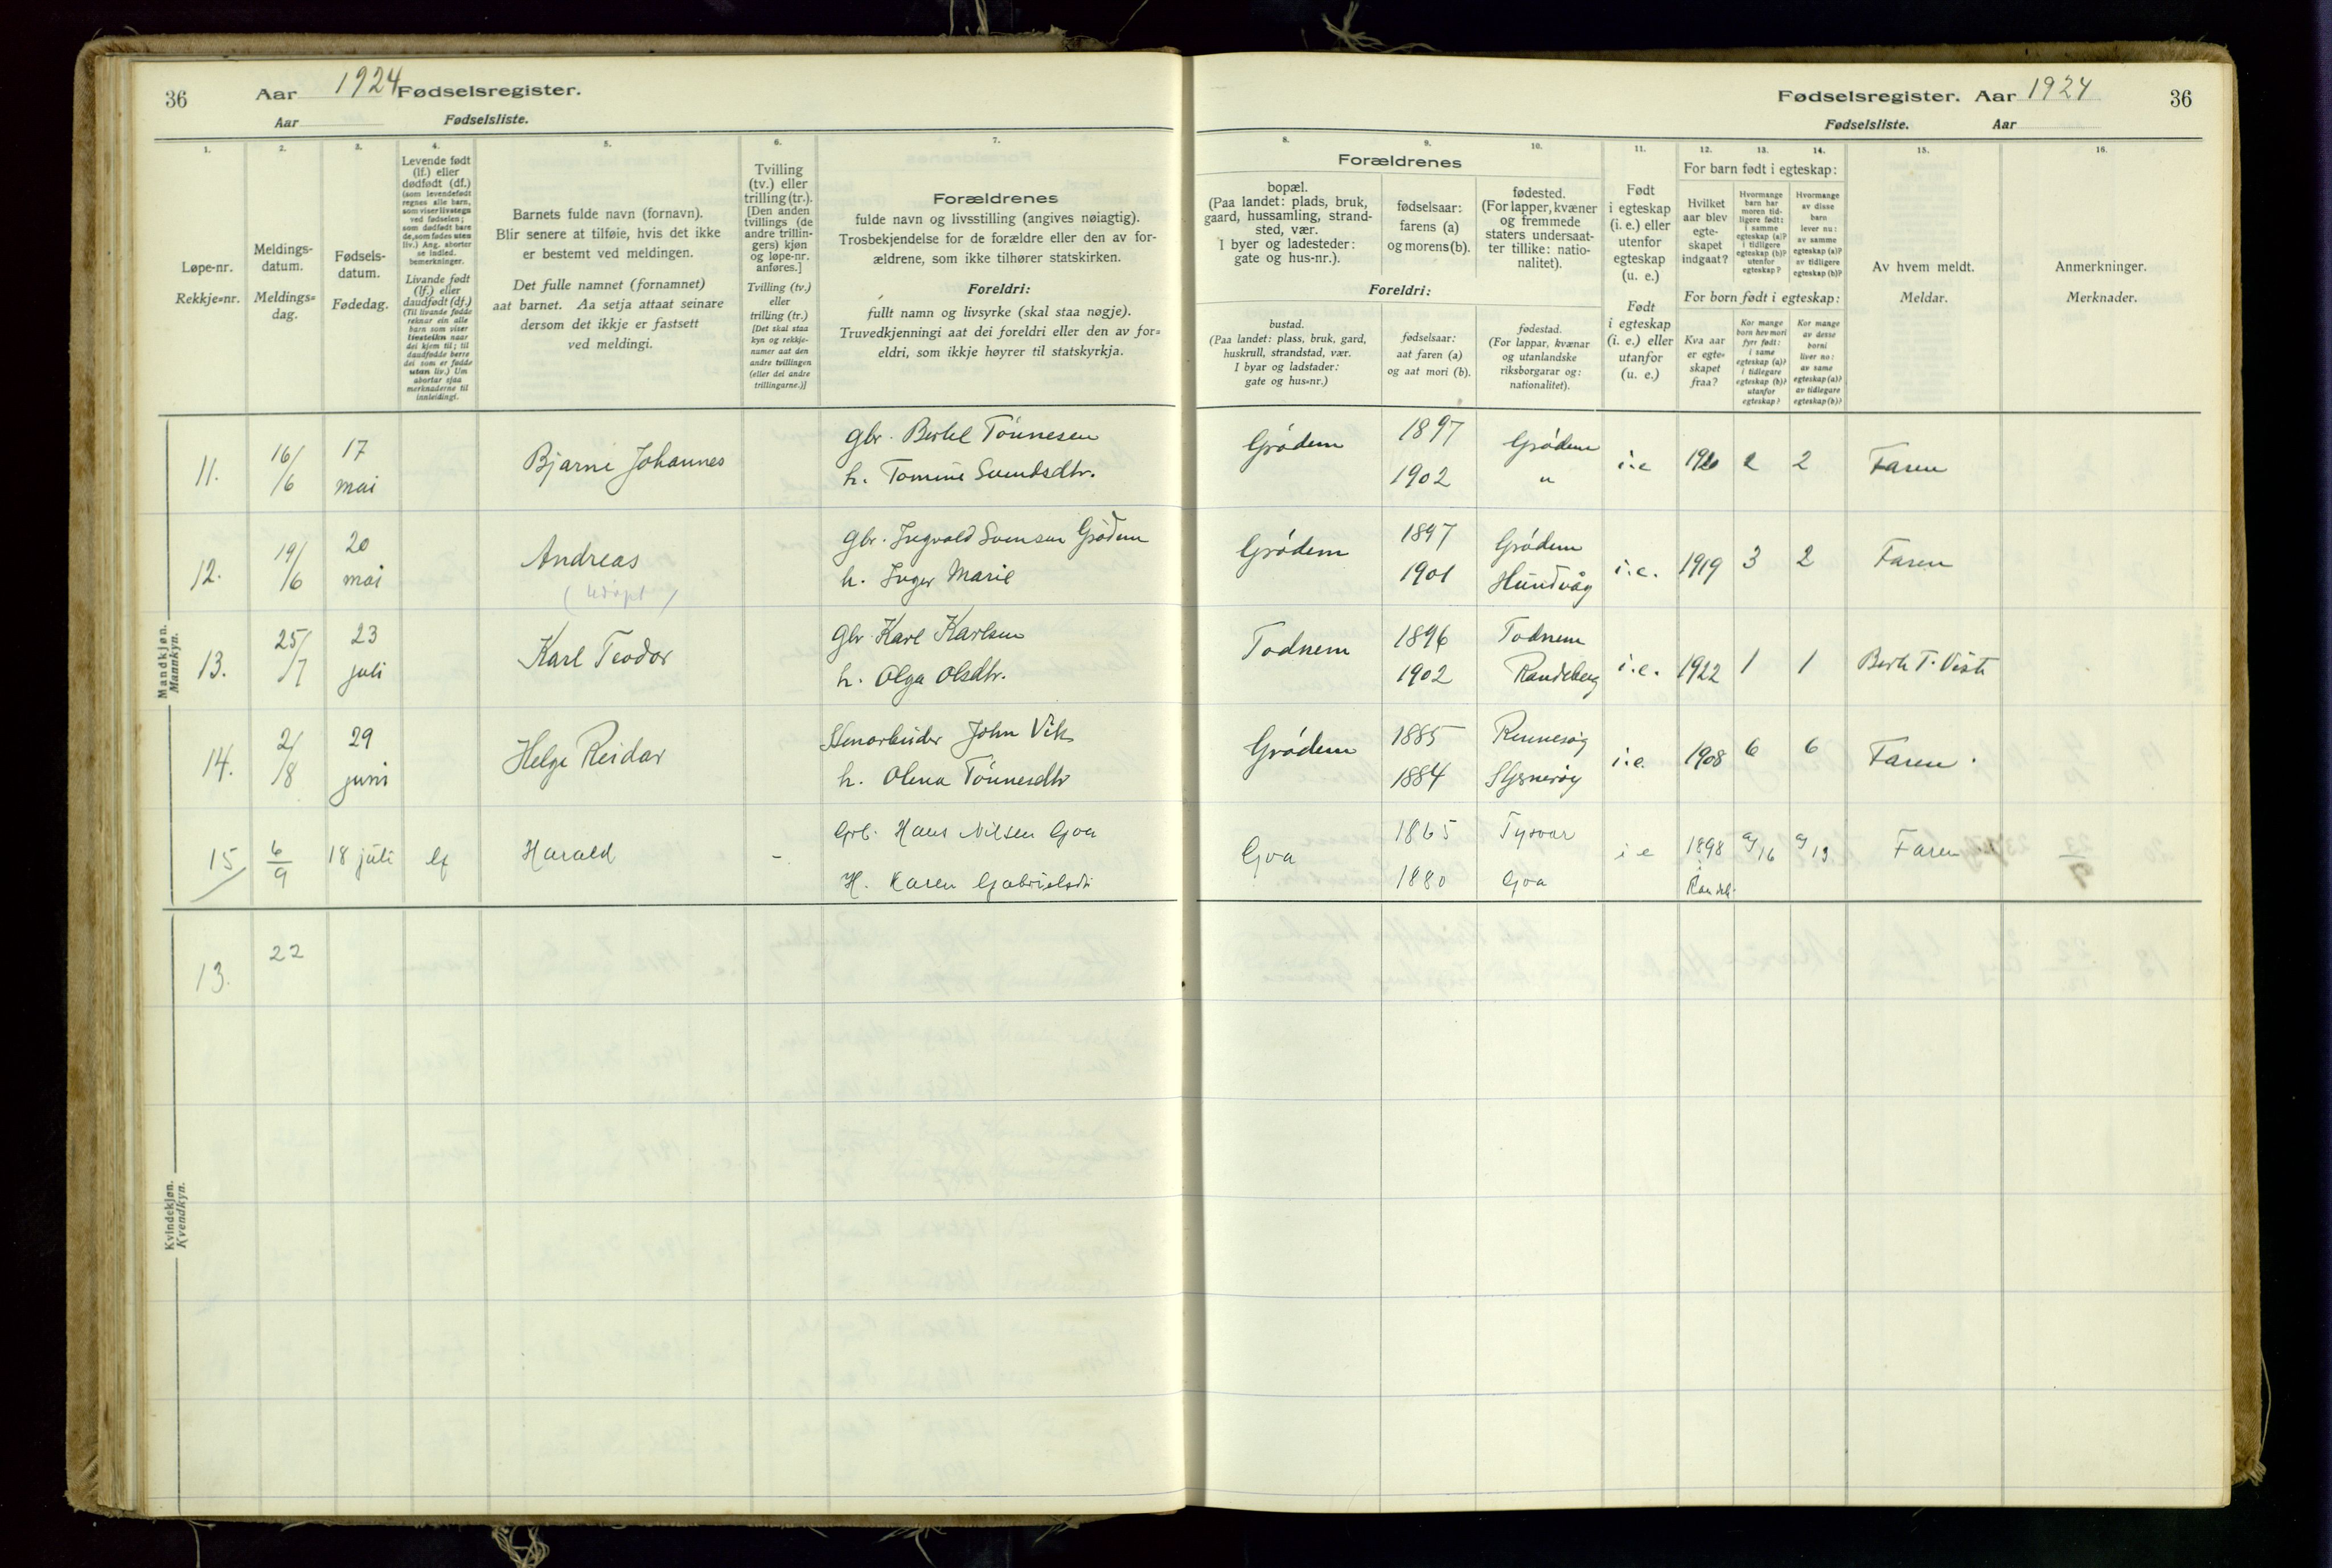 36 Aar 1924 Fødselsregister.
Aar Fødselsliste.
Fødselsregister. Aar 1924 36
Fødselsliste. Aar
1. 2. 3. 4. 5. 6. 7.
Løpe-nr.
Rekkje=nr.
Meldings-
datum.
Meldings=
dag.
Fødsels-
datum.
Fødedag.
Levende født
(lf.) eller
dødfødt (df.)
(som levendefødt
regnes alle barn,
som viser livstegn
ved fødselen;
som dødfødt bare
de, som fødes uten
liv.) Ang. aborter
se indled.
bemerkninger.
Livande født
(lf.) eller
daudfødt (df.)
(Til livande fødde
reknar ein alle
barn som viser
livsteikn naar
dei kjem til; til
daudfødde berre
dei som er fødde
utan liv.) Um
abortar sjaa
merknaderne til
innleidingi.
Barnets fulde navn (fornavn).
Blir senere at tilføie, hvis det ikke
er bestemt ved meldingen.
Det fulle namnet (fornamnet)
aat barnet. Aa setja attaat seinare
dersom det ikkje er fastsett
ved meldingi.
Tvilling
(tv.) eller
trilling (tr.).
[Den anden
tvillings (de
andre trillin-
gers) kjøn
og løpe-nr.
anføres.]
Tvilling (tv.)
eller
trilling (tr.)
[Det skal staa
kyn og rekkje-
numer aat den
andre tvillingen
(eller dei andre
trillingarne.)]
Forældrenes
fulde navn og livsstilling (angives nøiagtig).
Trosbekjendelse for de forældre eller den av for-
ældrene, som ikke tilhører statskirken.
Foreldri:
fullt namn og livsyrke (skal staa nøgje).
Truvedkjenningi aat dei foreldri eller den av for=
eldri, som ikkje høyrer til statskyrkja.
8. 9. 10. 11. 12. 13. 14. 15. 16.
Forældrenes
bopæl.
(Paa landet: plads, bruk,
gaard, hussamling, strand-
sted, vær.
I byer og ladesteder:
gate og hus-nr.).
fødselsaar:
farens (a)
og morens (b).
fødested.
(For lapper, kvæner
og fremmede
staters undersaat-
ter tillike: natio-
nalitet).
Foreldri:
bustad.
(Paa landet: plass, bruk, gard,
huskrull, strandstad, vær.
I byar og ladstader:
gate og hus=nr.)
fødselsaar:
aat faren (a)
og aat mori (b).
fødestad.
(For lappar, kvænar
og utanlandske
riksborgarar og:
nationalitet).
Født
i egteskap
(i. e.) eller
utenfor
egteskap
(u. e.)
Født
i egteskap
(i. e.) eller
utanfor
(u. e.)
For barn født i egteskap:
Hvilket
aar blev
egte-
skapet
indgaat?
Hvormange
barn har
moren tid-
ligere født:
i samme
egteskap (a)?
i tidligere
egteskap (b)?
utenfor
egteskap?
Hvormange
av disse
barn
lever nu:
av samme
egteskap (a)?
av tidligere
egteskap (b)?
For born født i egteskap:
Kva aar
er egte=
skapet
fraa?
Kor mange
born hev mori
fyrr født:
i same
egteskap (a)?
i tidlegare
egteskap (b)?
utanfor
egteskap?
Kor mange
av desse
borni
liver no:
av same
egteskap (a)?
av tidlegare
egteskap (b)?
Av hvem meldt.
Meldar.
Anmerkninger.
Merknader.
Mandkjøn.
Mannkyn.
11. 16/6 17 mai Bjarne Johannes
gbr. Bertel Tönnesen
h. Tomine Svendsdtr.
Grödem 1897 1902 Grödem " i.e 1920 2 2 Faren
12. 19/6 20 mai Andreas
gbr. Ingvald Svensen Grödem
h. Inger Marie
Grödem 1897 1901 Grödem Hundvåg i.e. 1919 3 2 Faren
13. 25/7 23 juli Karl Teodor
gbr. Karl Karlsen
h. Olga Olsdtr.
Todnem 1896 1902 Todnem Randeberg i.e. 1922 1 1 Berte T. Viste
14. 2/8 29 juni Helge Reidar
Stenarbeider John Vik
h. Olena Tönnesdtr
Grödem 1885 1884 Rennesöy Stjerneröy i.e. 1908 6 6 Faren
15 6/9 18 juli lf Harald -
Grb. Hans Nilsen Goa
H. Karen Gabrielsdtr
Goa 1865 1880 Tysvær Goa i e 1898 i Randeb. a/16 a/13 Faren
Kvindekjøn.
Kvendkyn.
13. 22